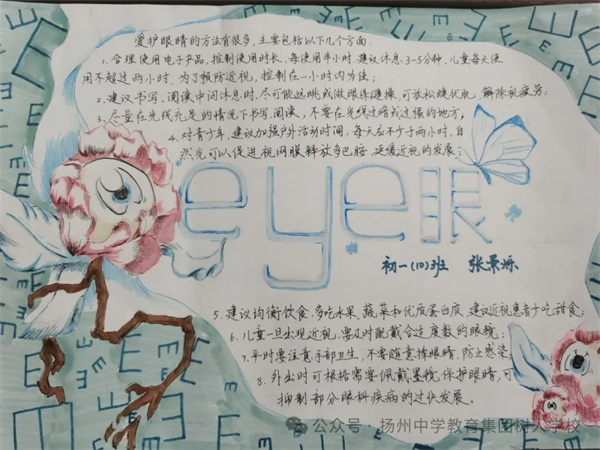 爱护眼睛的方法有很多,主要包括以下几个方面:
1.合理使用电子产品,控制使用时长,每使用半小时,建议休息3-5分钟,儿童每天使
用不超过两小时,为了预防近视,控制在一小时内为佳;
2.建议书写、阅读中间休息时,尽可能远眺或做眼保健操,可放松睫状肌,解除视疲劳;
3.尽量在光线充足的情况下书写、阅读,不要在光线过暗或过强的地方;
4.对青少年,建议加强户外活动时间,每天应不少于两小时,自
然光可以促进视网膜释放多巴胺,延缓近视的发展;
eye眼
初一(10)班 张景
5.建议均衡饮食,多吃水果、蔬菜和优质蛋白质,建议近视患者少吃甜食;
6.儿童一旦出现近视,要及时配戴合适度数的眼镜;
7.平时要注意手部卫生,不要随意揉眼睛,防止感染;
8.外出时可根据需要佩戴墨镜,保护眼睛,可
抑制部分眼科疾病的过快发展。
公众号·扬州中学教育集团树人学校